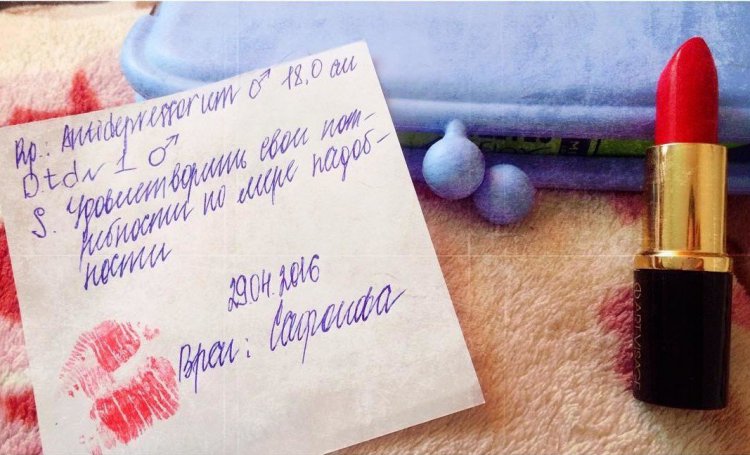 Rp.: Antidepressorum ♂ 18.0 см
D t d N 1 ♂
S. Удовлетворить свои пот-
ребности по мере надоб-
ности
29.04.2016
Врач: Сафонова
ART-VISAGE